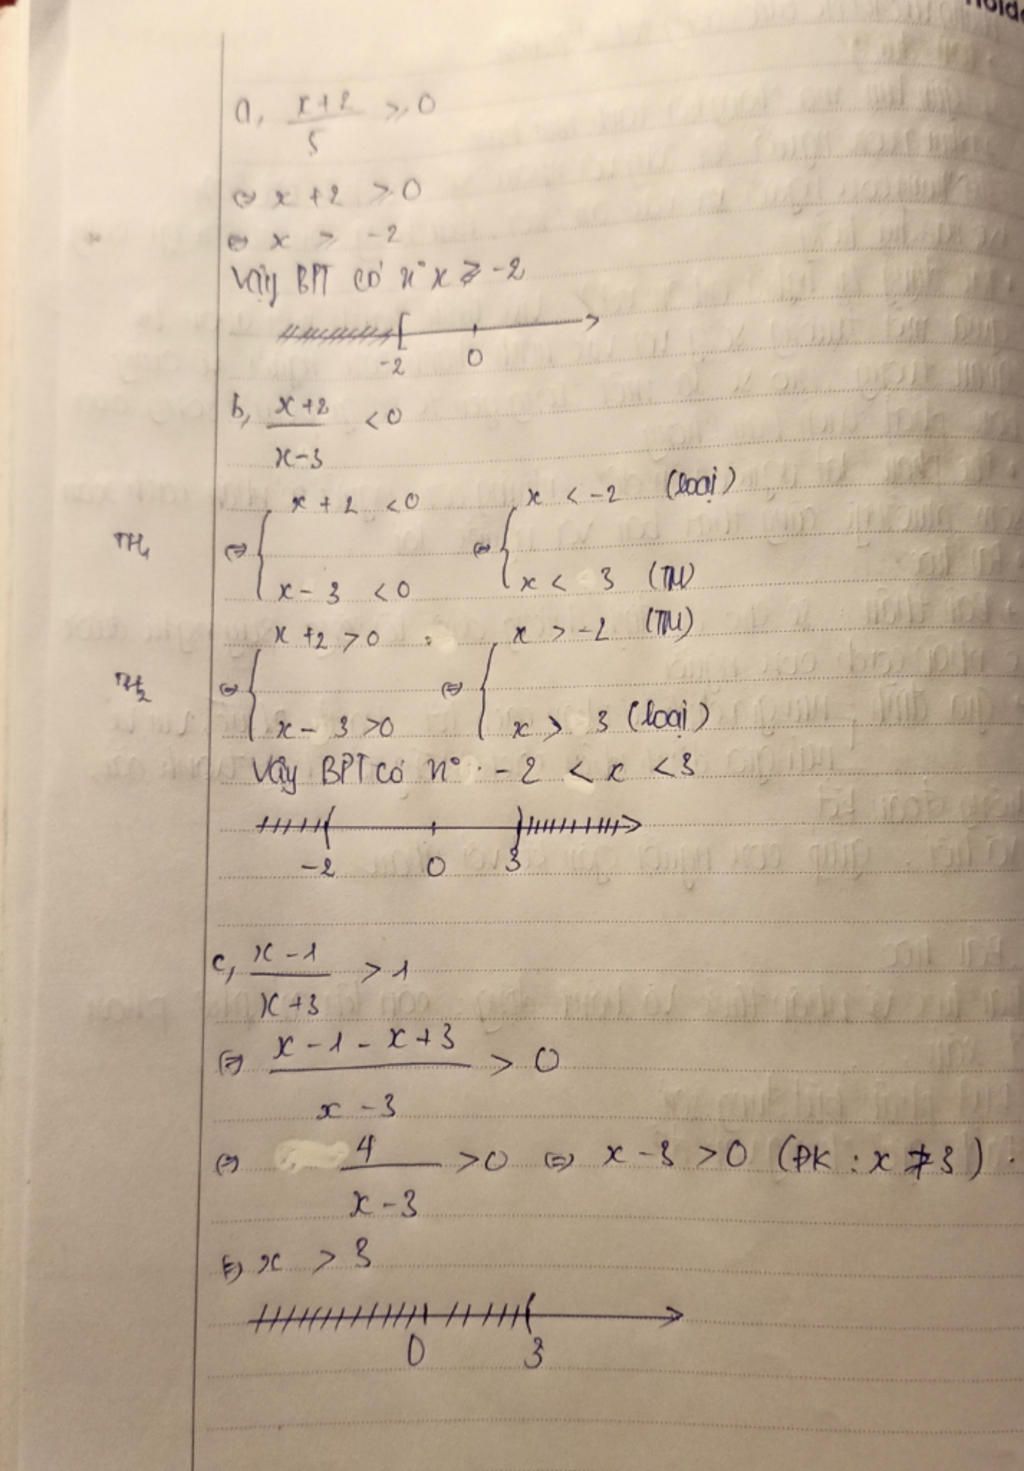 a, x+2/5 ≥ 0
⇔ x + 2 > 0
⇔ x > -2
Vậy BPT có n° x ≥ -2
-2 0
b, x+2/x-3 < 0
TH1 ⇔ { x + 2 < 0 ⇔ { x < -2 (loại)
x - 3 < 0 x < 3 (TM)
TH2 ⇔ { x + 2 > 0 ⇔ { x > -2 (TM)
x - 3 > 0 x > 3 (loại)
Vậy BPT có n° -2 < x < 3
-2 0 3
c, x-1/x+3 > 1
⇔ x-1-x+3/x-3 > 0
⇔ 4/x-3 > 0 ⇔ x-3 > 0 (ĐK : x ≠ 3)
⇔ x > 3
0 3